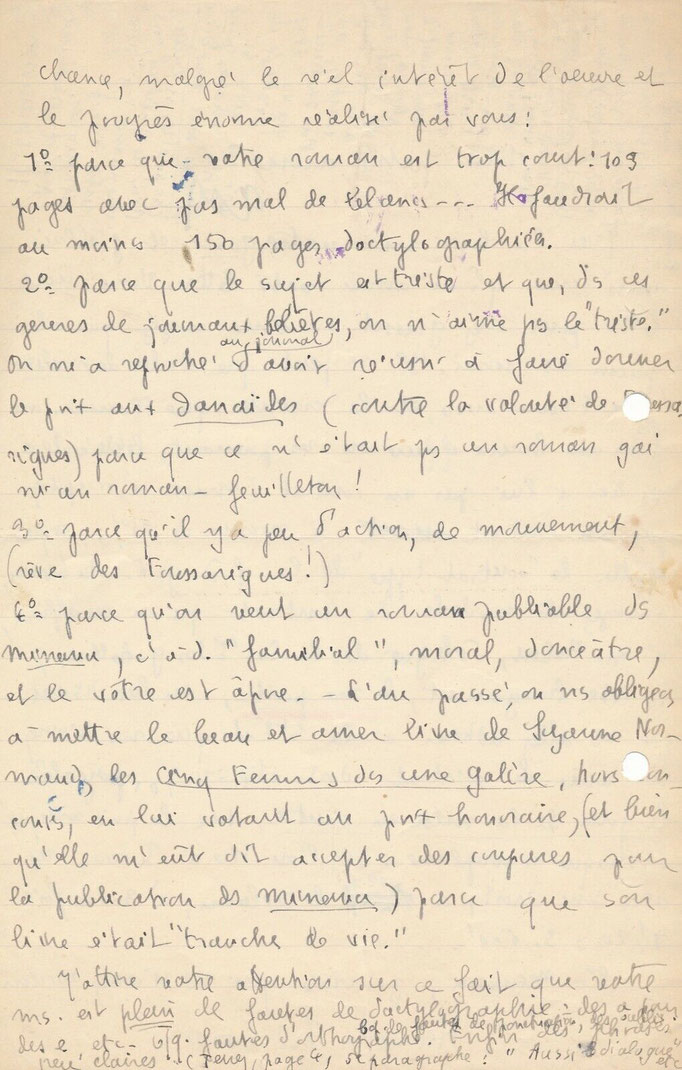 chance, malgré le réel intérêt de l'oeuvre et
le progrès énorme réalisé par vous :
1º parce que votre roman est trop court : 109
pages avec pas mal de blancs --- Il faudrait
au moins 150 pages dactylographiées.
2º parce que le sujet est triste et que, ds ces
genres de journaux, on n'aime ps le "triste."
On m'a reproché d'avoir réussi à faire donner
au journal
le prix aux Danaïdes (contre la volonté de
rigues) parce que ce n'était ps un roman gai
ni un roman-feuilleton !
3º parce qu'il y a peu d'action, de mouvement,
(rêve des Foussarigues !)
4º parce qu'on veut un roman publiable ds
Minerva, c'à d. "familial", moral, douceâtre,
et le vôtre est âpre. - L'an passé, on ns obligea
à mettre le beau et amer livre de Suzanne Nor-
mand, les Cinq Femmes ds une galère, hors con-
cours, en lui votant un prix honoraire, (et bien
qu'elle m'eût dit accepter des coupures pour
la publication ds Minerva) parce que son
livre était "tranche de vie."
J'attire votre attention sur ce fait que votre
ms. est plein de fautes de dactylographie : des a pour
des e etc - fautes d'orthographe. Enfin des phrases
bp de fautes de ponctuation
peu claires. (Tenez, page 4, 5e paragraphe : "Aussi dialogue" etc